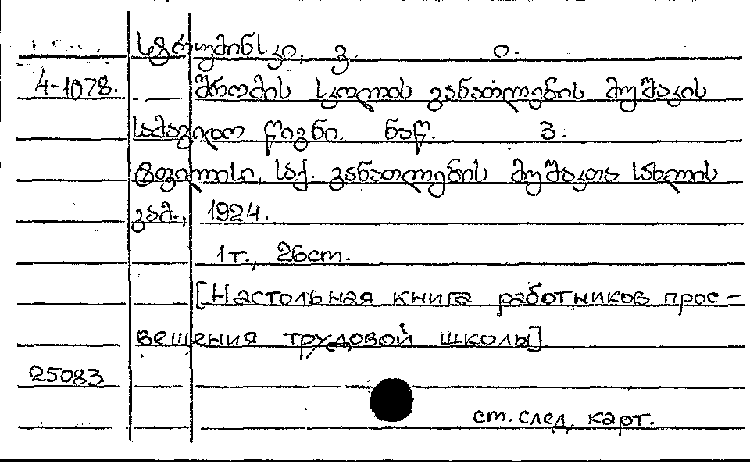 სტრუმინსკი, ვ. ი.
4-1078. შრომის სკოლის განათლების მუშაკის
სამაგიდო წიგნი. ნაწ. 3.
ტფილისი, საქ. განათლების მუშაკთა სახლის
გამ., 1924.
1т., 26ст.
[Настольная книга работников прос-
вещения трудовой школы]
25083
ст. след. карт.